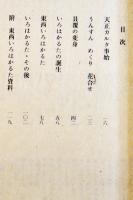 目次
天正カルタ事始 一八
うんすん めくり 花合せ 二三
貝覆の変身 四一
いろはかるたの誕生 五八
東西いろはかるた 七八
いろはかるた・その後 一〇二
附 東西いろはかるた資料 一一九